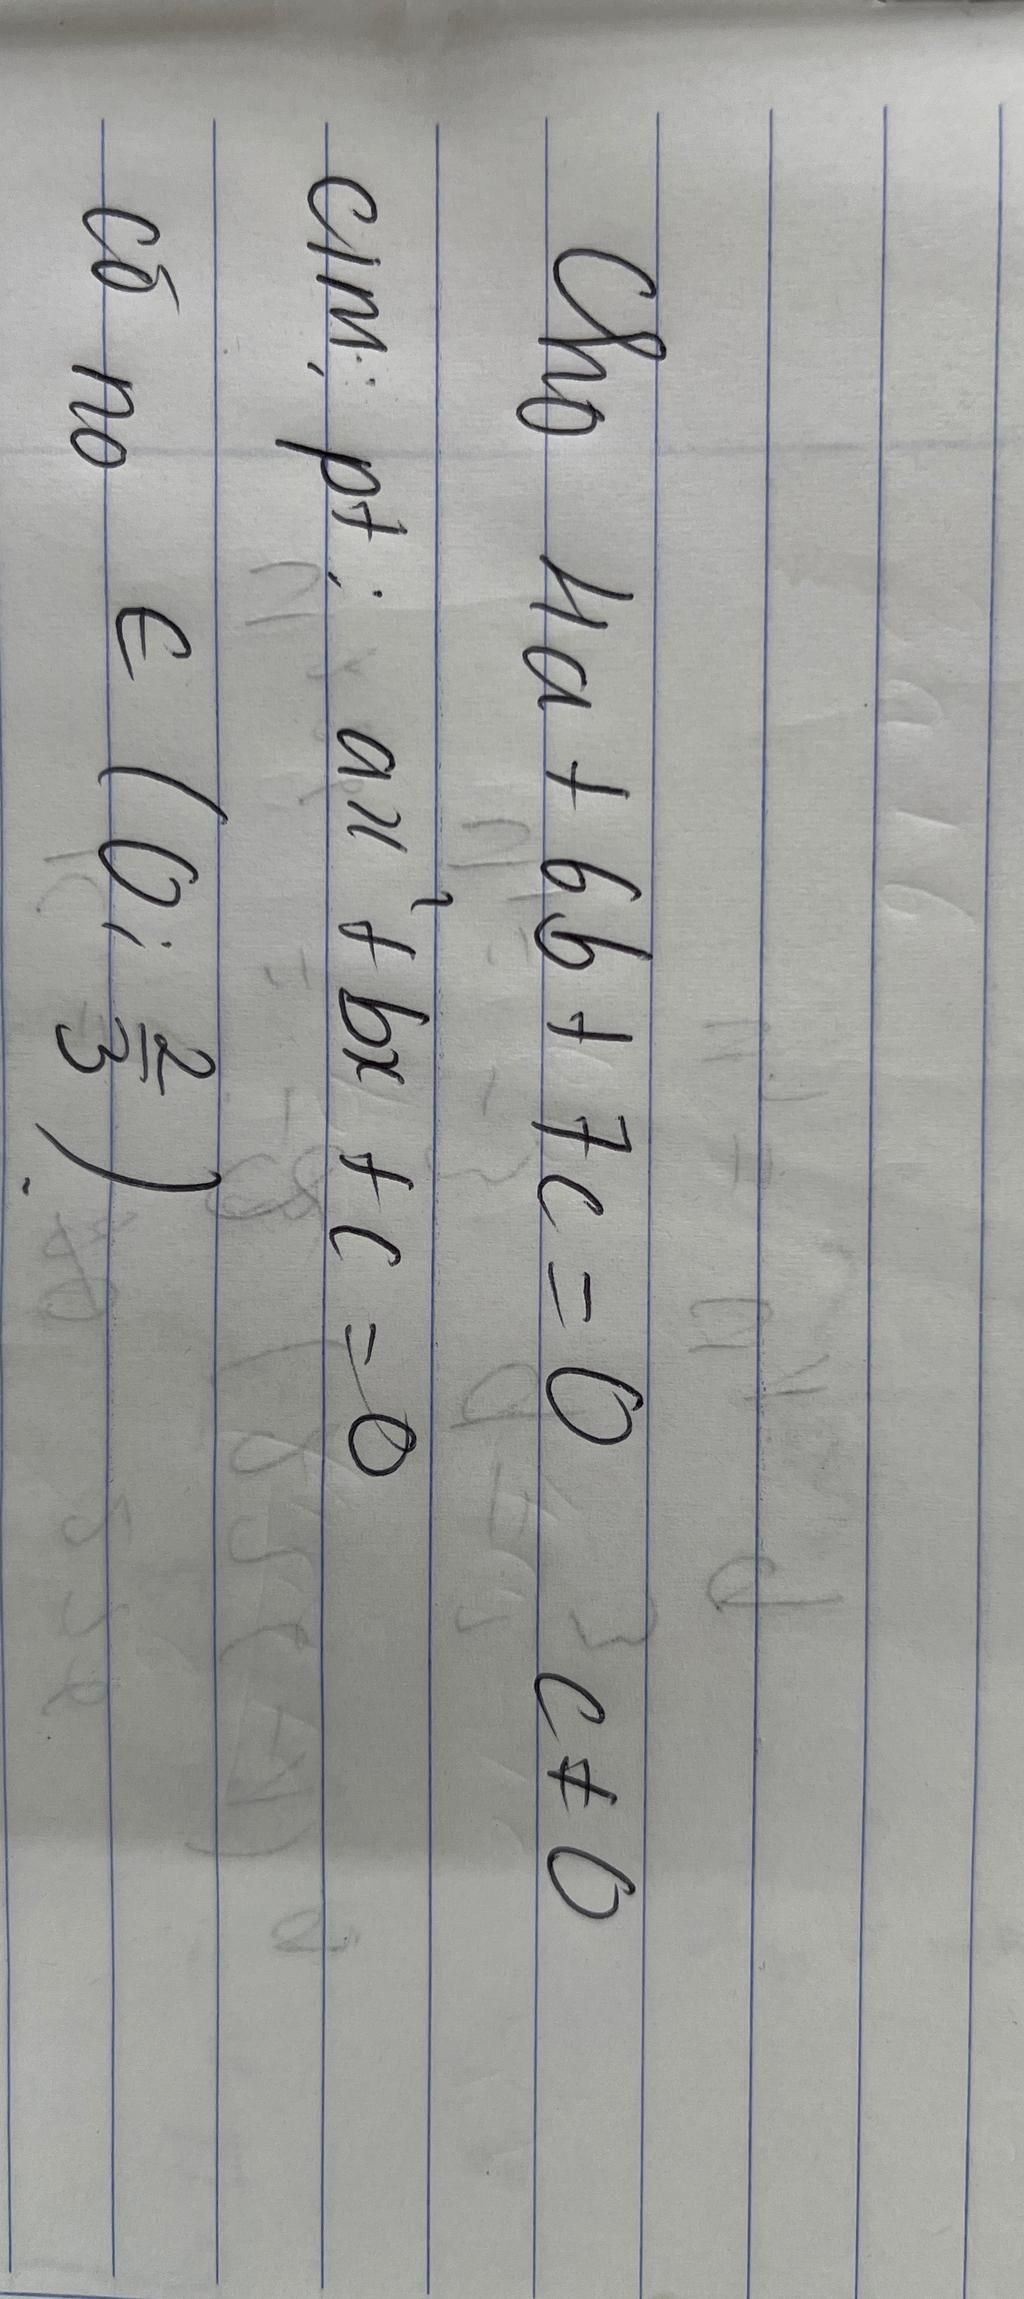 Cho 4a + 6b + 7c = 0 c ≠ 0
CIM: pt: ax² + bx + c = 0
có no ∈ (0; 2/3)